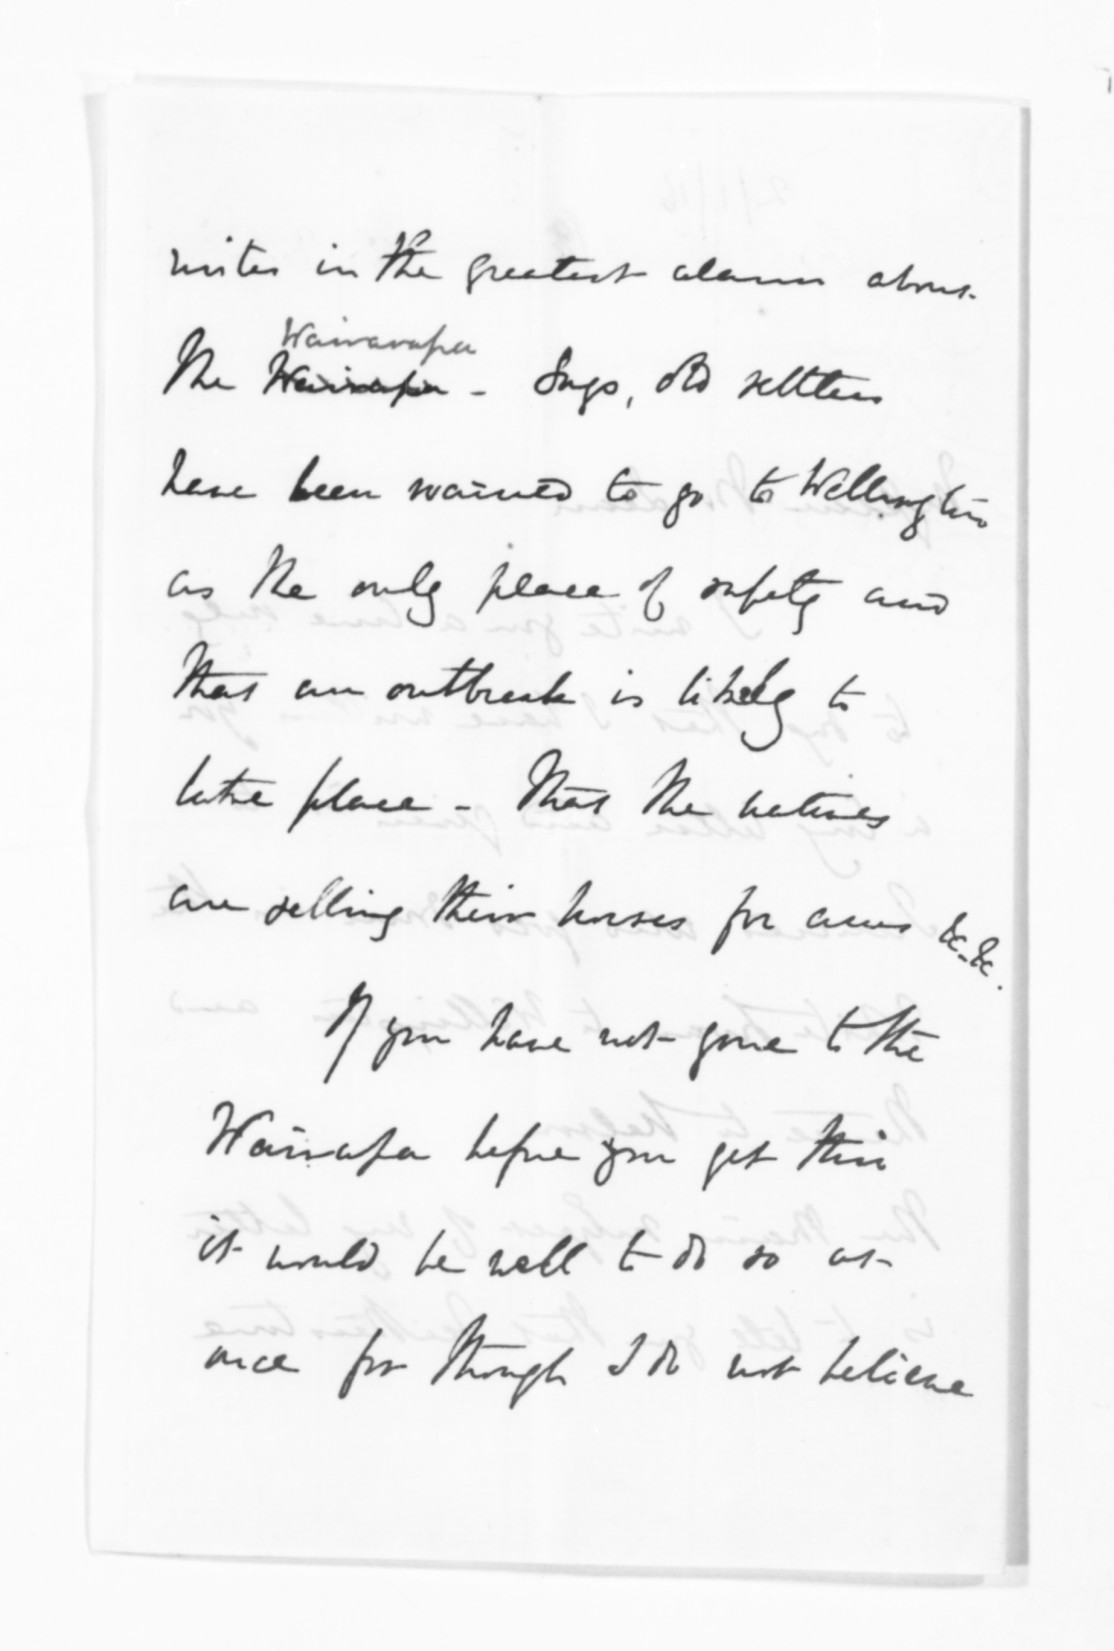 writes in the greatest alarm about
Wairarapa
the Wairarapa - Says, old settlers
have been warned to go to Wellington
as the only place of safety and
that an outbreak is likely to
take place - That the natives
are selling their horses for arms &c. &c.
If you have not gone to the
Wairarapa before you get this
it would be well to do so at
once for though I do not believe